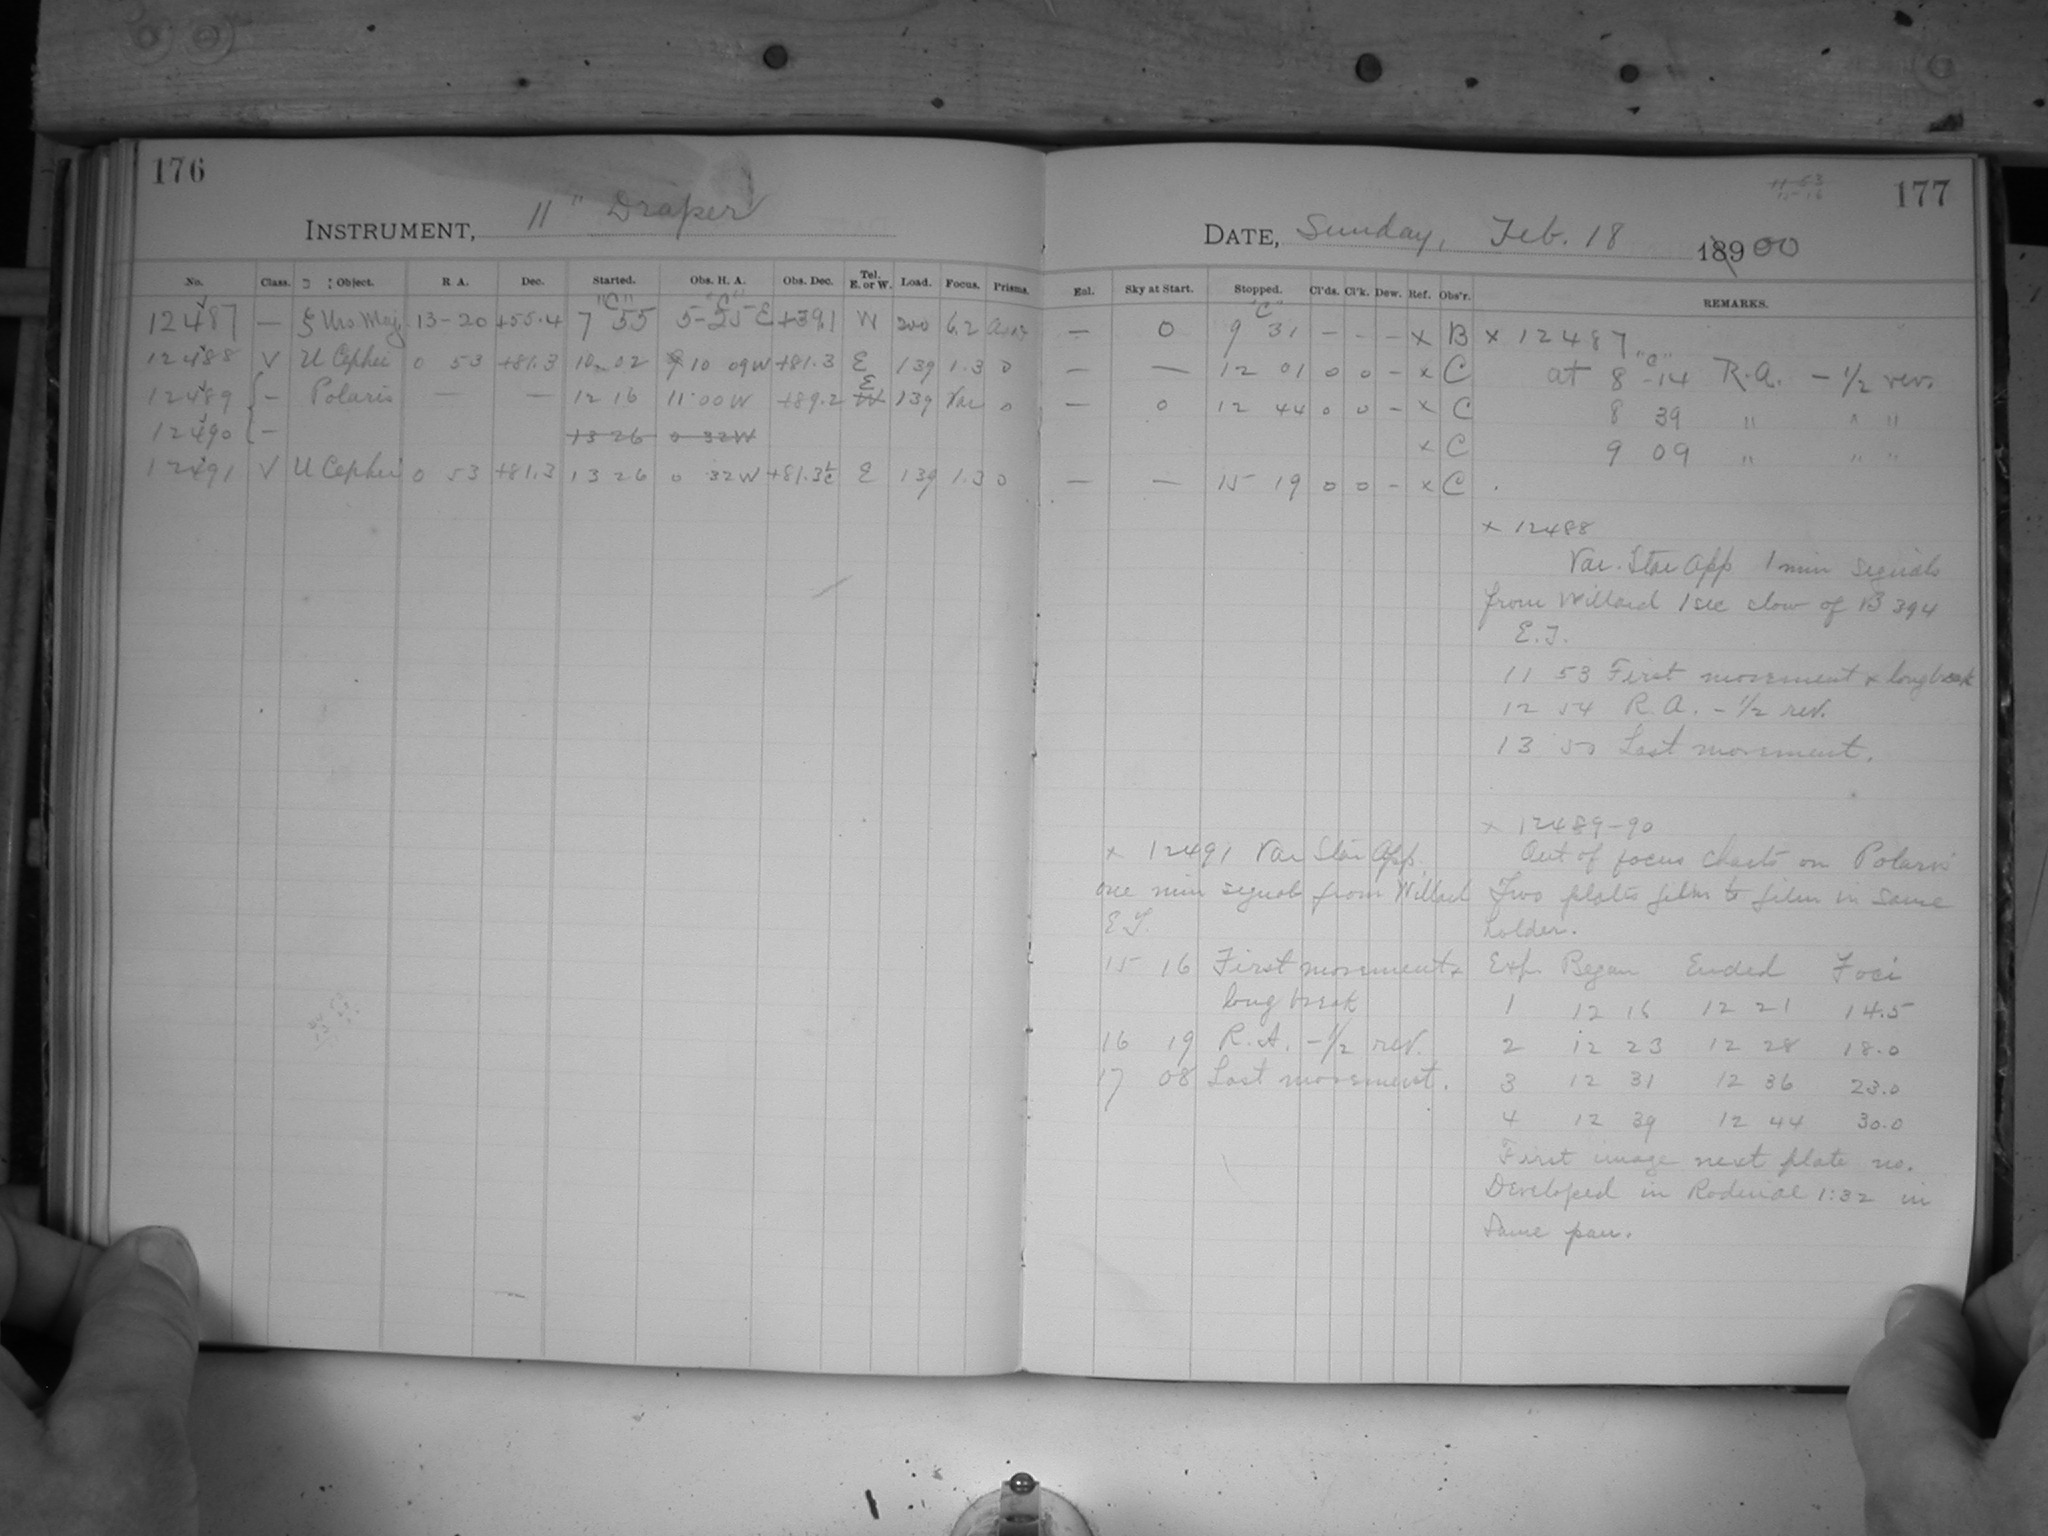 176
INSTRUMENT, 11" Draper
No. Class. Object. R A. Dec. Started. Obs. H. A. Obs. Dec. Tel. E. or W. Load. Focus. Prisms.
"C" "C"
12487 — ξ Urs. Maj. 13-20 +55.4 7 55 5-25 E +39.1 W 200 6.2
12488 V U Cephei 0 53 +81.3 10 02 10 09 W +81.3 E 139 1.3 0
12489 { — Polaris — — 12 16 11 00 W +89.2 E 139 Var 0
12490 { — 13 26 0 32 W
12491 V U Cephei 0 53 +81.3 13 26 0 32 W +81.3 E 139 1.3 0
177
11 53
15 16
DATE, Sunday, Feb. 18 18900
Eul. Sky at Start. Stopped. Cl'ds. Cl'k. Dew. Ref. Obs'r. REMARKS.
"C"
— 0 9 31 — — — x B
— — 12 01 0 0 — x C
— 0 12 44 0 0 — x C
x C
— — 15 19 0 0 — x C
x 12487
"C"
at 8-14 R.A. — 1/2 rev.
8 39 " " "
9 09 " " "
x 12488
Var. Star App 1 min signals
from Willard 1 sec slow of B 394
E.T.
11 53 First movement & long break
12 54 R.A. — 1/2 rev.
13 50 Last movement.
x 12489-90
Out of focus charts on Polaris
Two plates film to film in same
holder.
Exp. Began Ended Foci
1 12 16 12 21 14.5
2 12 23 12 28 18.0
3 12 31 12 36 23.0
4 12 39 12 44 30.0
First image next plate no.
Developed in Rodinal 1:32 in
same pan.
x 12491 Var Star App.
one min signals from Willard
E.T.
15 16 First movement &
long break
16 19 R.A. — 1/2 rev.
17 08 Last movement.